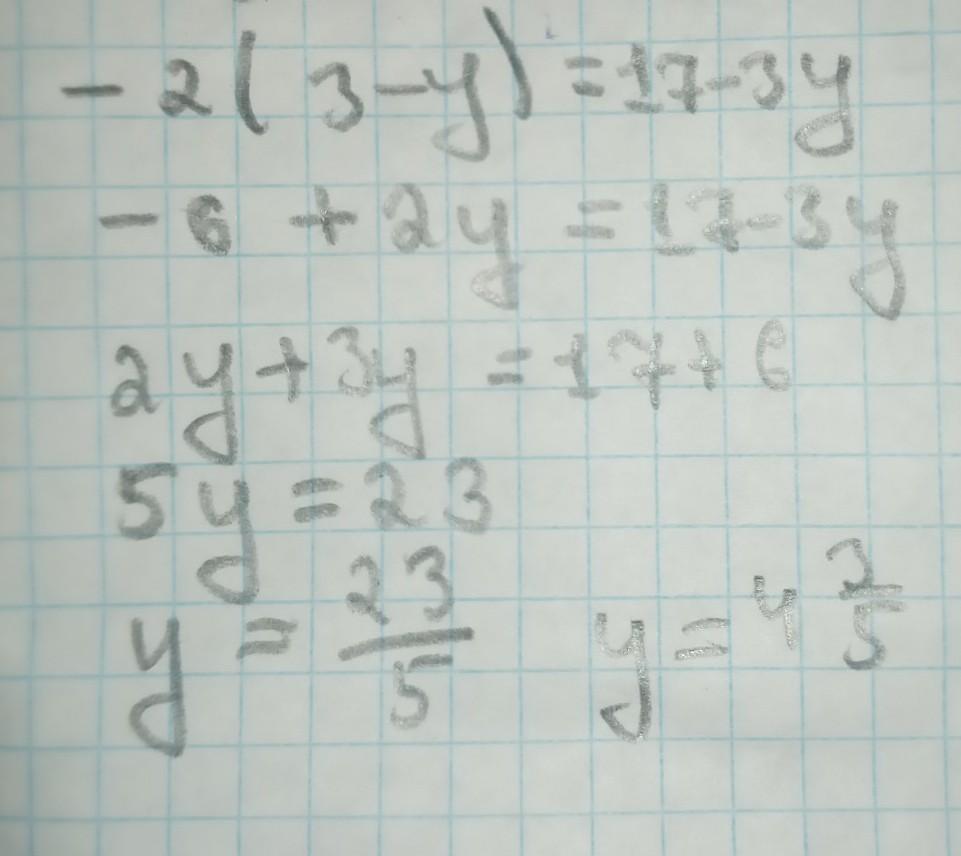 - 2(3-y)=17-3y
-6+2y=17-3y
2y+3y=17+6
5y=23
y=23/5 y=4 2/5